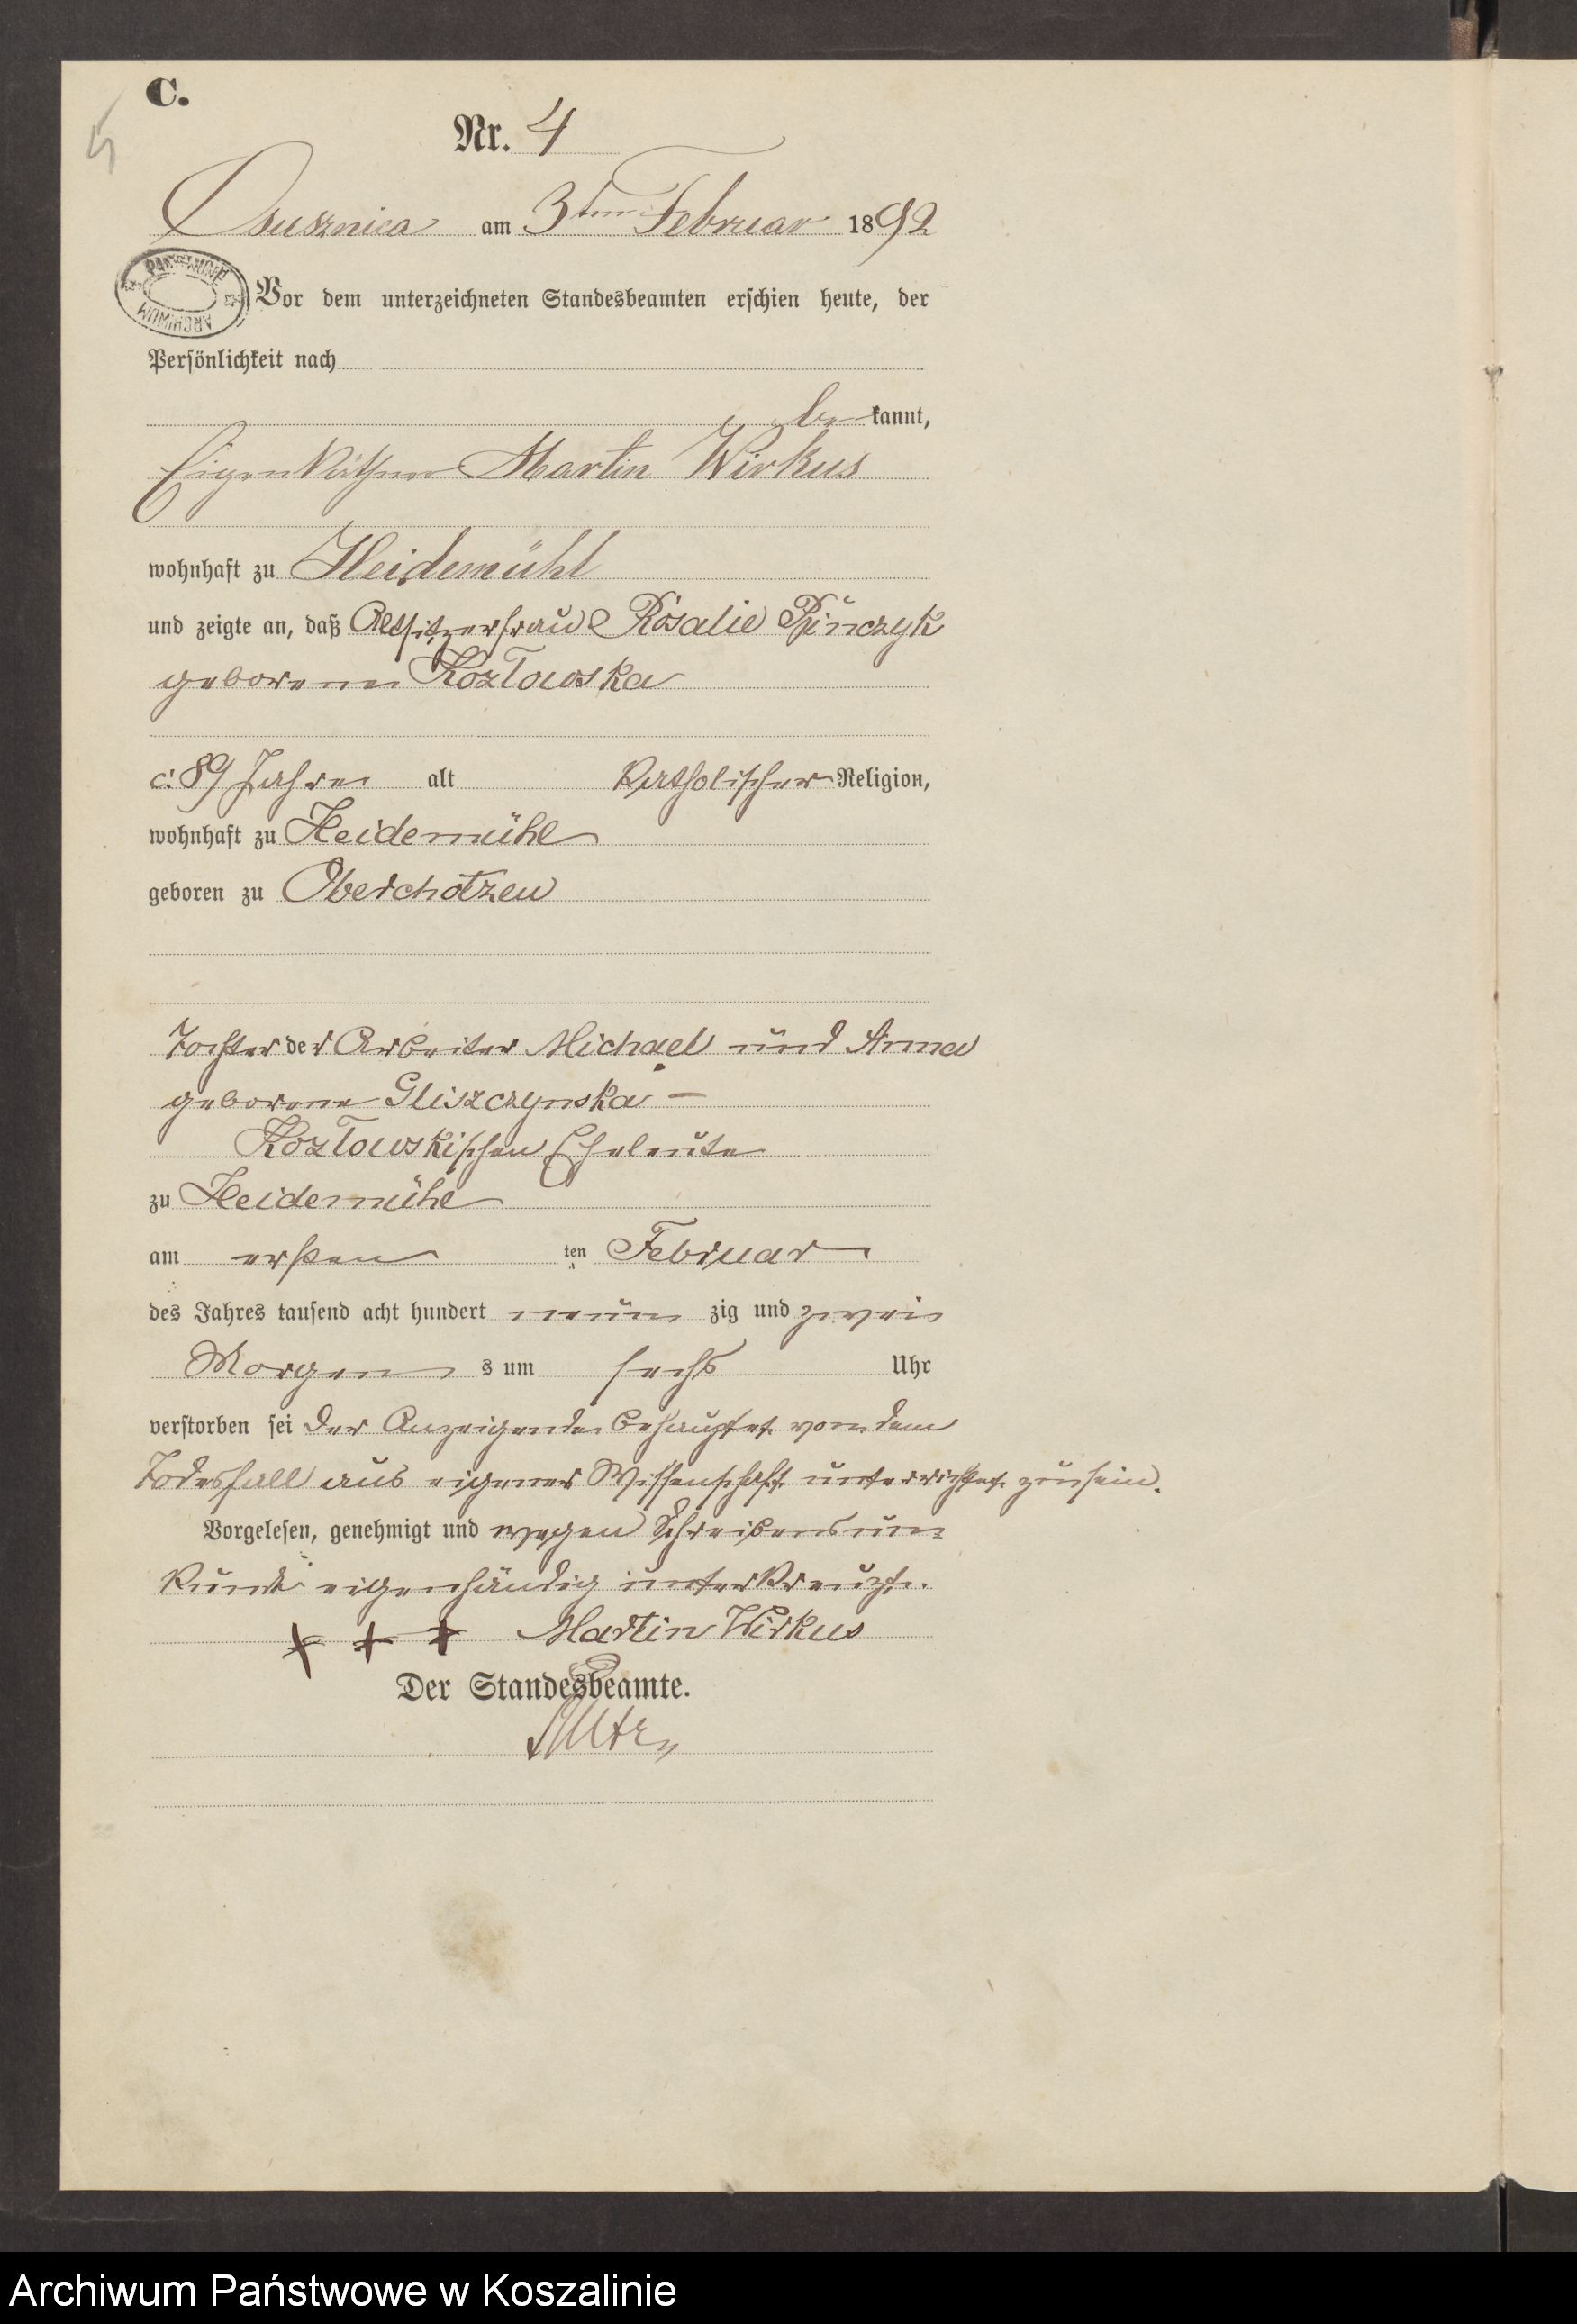 C.
5
Nr. 4
Osusznica am 3ten Februar 1892
ARCHIWUM
Vor dem unterzeichneten Standesbeamten erschien heute, der
Persönlichkeit nach
be kannt,
Eigenkäthner Martin Wirkus
wohnhaft zu Heidemühl
und zeigte an, daß Altsitzerfrau Rosalie
geborene Kozlowska
c: 89 Jahre alt katholischer Religion,
wohnhaft zu Heidemühl
geboren zu Oberchotzen
Tochter der Arbeiter Michael und Anna
geborene Gliszczynska –
Kozlowskischen Eheleute
zu Heidemühl
am ersten ten Februar
des Jahres tausend acht hundert neun zig und zwei
Morgen s um sechs Uhr
verstorben sei der Anzeigende behauptet von dem
Todesfall aus eigener Wissenschaft unterrichtet zu sein.
Vorgelesen, genehmigt und wegen Schreibensun=
kunde eigenhändig unterkreuzt.
+ + + Martin Wirkus
Der Standesbeamte.
Archiwum Państwowe w Koszalinie